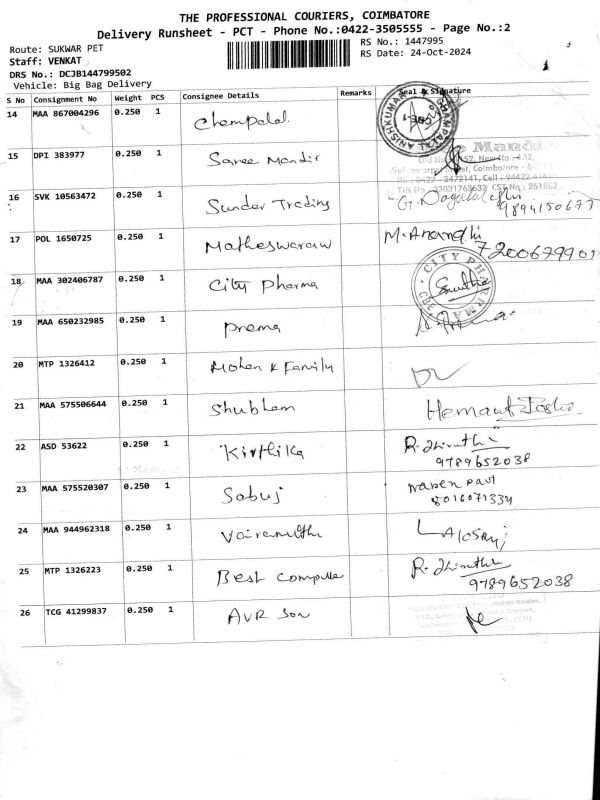 THE PROFESSIONAL COURIERS, COIMBATORE
Delivery Runsheet - PCT - Phone No.:0422-3505555 - Page No.:2
Route: SUKWAR PET
RS No.: 1447995
Staff: VENKAT
RS Date: 24-Oct-2024
DRS No.: DCJB144799502
Vehicle: Big Bag Delivery
S No Consignment No Weight PCS Consignee Details Remarks Seal & Signature
14 MAA 867004296 0.250 1 Champalal
15 DPI 383977 0.250 1 Saree Mandir
16 SVK 10563472 0.250 1 Sunder Trading
9894150677
17 POL 1650725 0.250 1 Matheswaran M. Anandhi
7200679901
18 MAA 302406787 0.250 1 City Pharma CITY PHARMA
19 MAA 650232985 0.250 1 Prema
20 MTP 1326412 0.250 1 Mohan & Family
21 MAA 575506644 0.250 1 Shubham Hemant Joshi
22 ASD 53622 0.250 1 Kirthika
9789652038
23 MAA 575520307 0.250 1 Sabuj
8016071334
24 MAA 944962318 0.250 1 Vairamuthu
25 MTP 1326223 0.250 1 Best Compute
9789652038
26 TCG 41299837 0.250 1 AVR Son